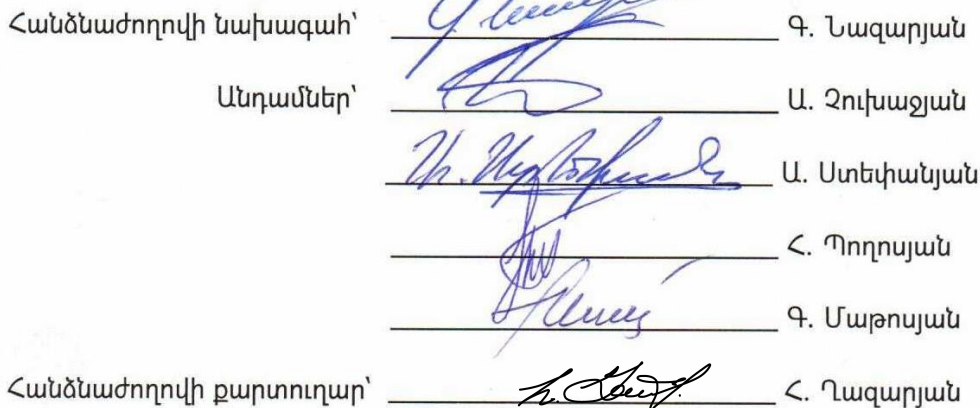 Հանձնաժողովի նախագահ՝ Գ. Նազարյան
Անդամներ՝ Ա. Չուխաջյան
Ա. Ստեփանյան
Հ. Պողոսյան
Գ. Մաթոսյան
Հանձնաժողովի քարտուղար՝ Հ. Ղազարյան